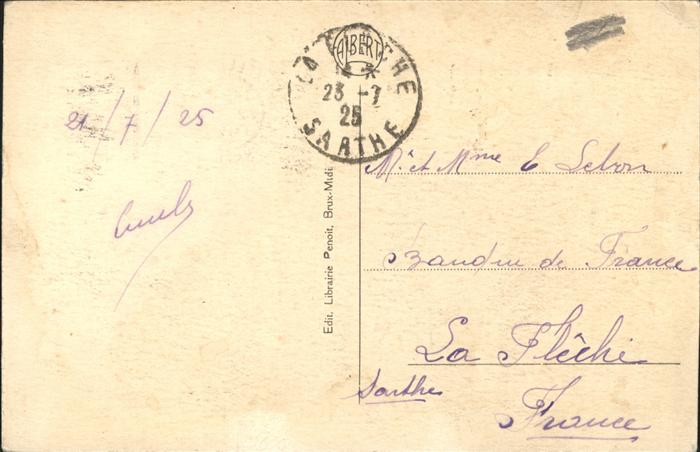 ALBERT
LA FLÈCHE
23 -7
25
SARTHE
21/7/25
Edit. Librairie Penoit, Brux-Midi
Mr et Mme
de France
La Flêche
Sarthe
France